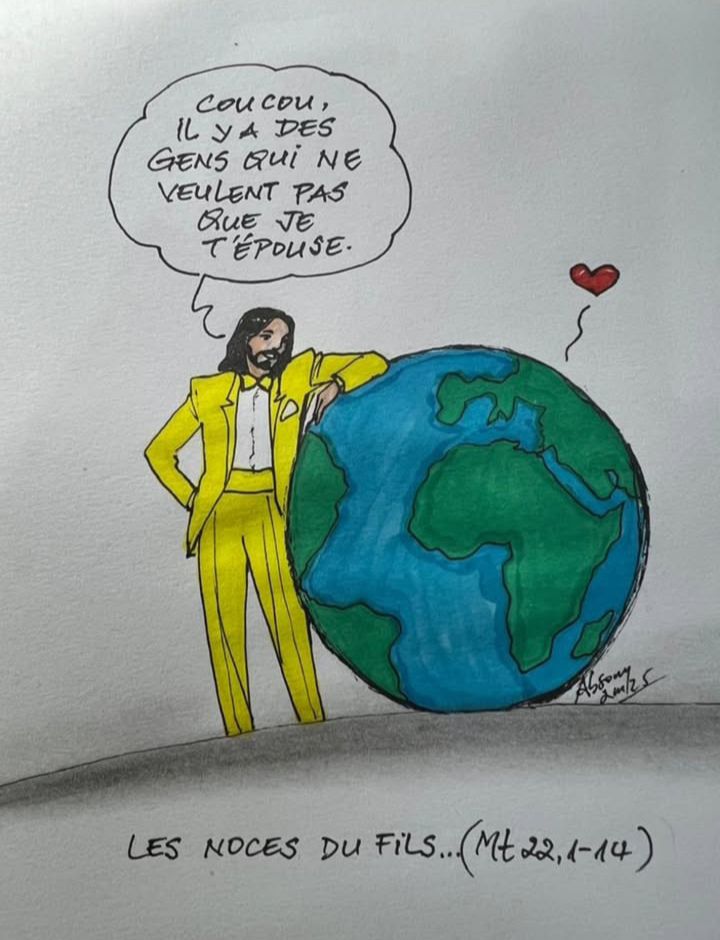 COUCOU,
IL Y A DES
GENS QUI NE
VEULENT PAS
QUE JE
T'ÉPOUSE.
LES NOCES DU FILS...(Mt 22,1-14)